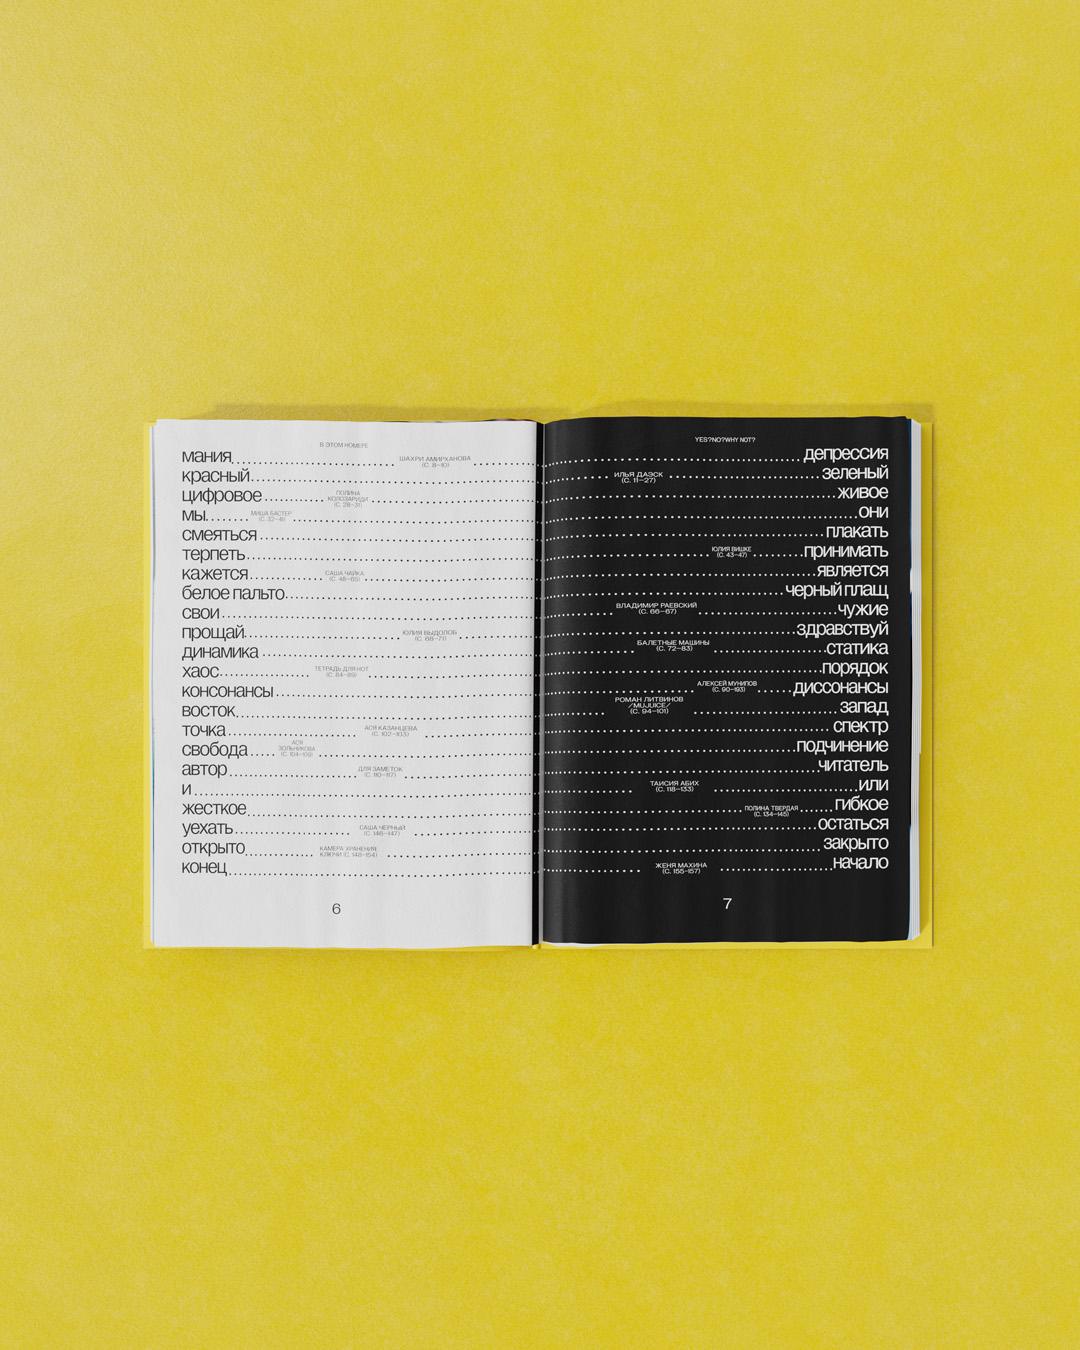 В ЭТОМ НОМЕРЕ
мания
ШАХРИ АМИРХАНОВА
(С. 8–10)
красный
цифровое
ПОЛИНА
КОЛОЗАРИДИ
(С. 28–31)
мы
МИША БАСТЕР
(С. 32–41)
смеяться
терпеть
кажется
САША ЧАЙКА
(С. 48–65)
белое пальто
свои
прощай
ЮЛИЯ ВЫДОЛОБ
(С. 68–71)
динамика
хаос
ТЕТРАДЬ ДЛЯ НОТ
(С. 84–89)
консонансы
восток
точка
АСЯ КАЗАНЦЕВА
(С. 102–103)
свобода
АСЯ
ЗОЛЬНИКОВА
(С. 104–109)
автор
ДЛЯ ЗАМЕТОК
(С. 110–117)
и
жесткое
уехать
САША ЧЕРНЫЙ
(С. 146–147)
открыто
КАМЕРА ХРАНЕНИЯ:
КЛЮЧИ (С. 148–154)
конец
6
YES?NO?WHY NOT?
депрессия
ИЛЬЯ ДАЭСК
(С. 11–27)
зеленый
живое
они
плакать
ЮЛИЯ ВИШКЕ
(С. 43–47)
принимать
является
черный плащ
ВЛАДИМИР РАЕВСКИЙ
(С. 66–67)
чужие
здравствуй
БАЛЕТНЫЕ МАШИНЫ
(С. 72–83)
статика
порядок
АЛЕКСЕЙ МУНИПОВ
(С. 90–193)
диссонансы
РОМАН ЛИТВИНОВ
/MUJUICE/
(С. 94–101)
запад
спектр
подчинение
читатель
ТАИСИЯ АБИХ
(С. 118–133)
или
ПОЛИНА ТВЕРДАЯ
(С. 134–145)
гибкое
остаться
закрыто
ЖЕНЯ МАХИНА
(С. 155–157)
начало
7